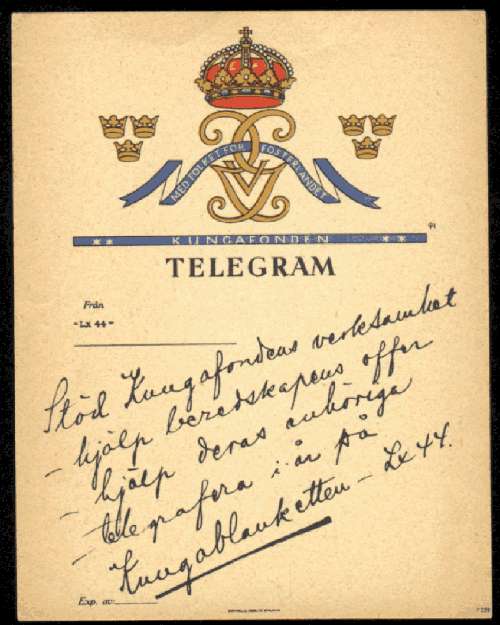 MED FOLKET FÖR FOSTERLANDET
KUNGAFONDEN
TELEGRAM
Från
"Lx 44"
Stöd Kungafondens verksamhet
- hjälp beredskapens offer
- hjälp deras anhöriga
- telegrafera i år på
Kungablanketten - Lx 44.
Exp. av: